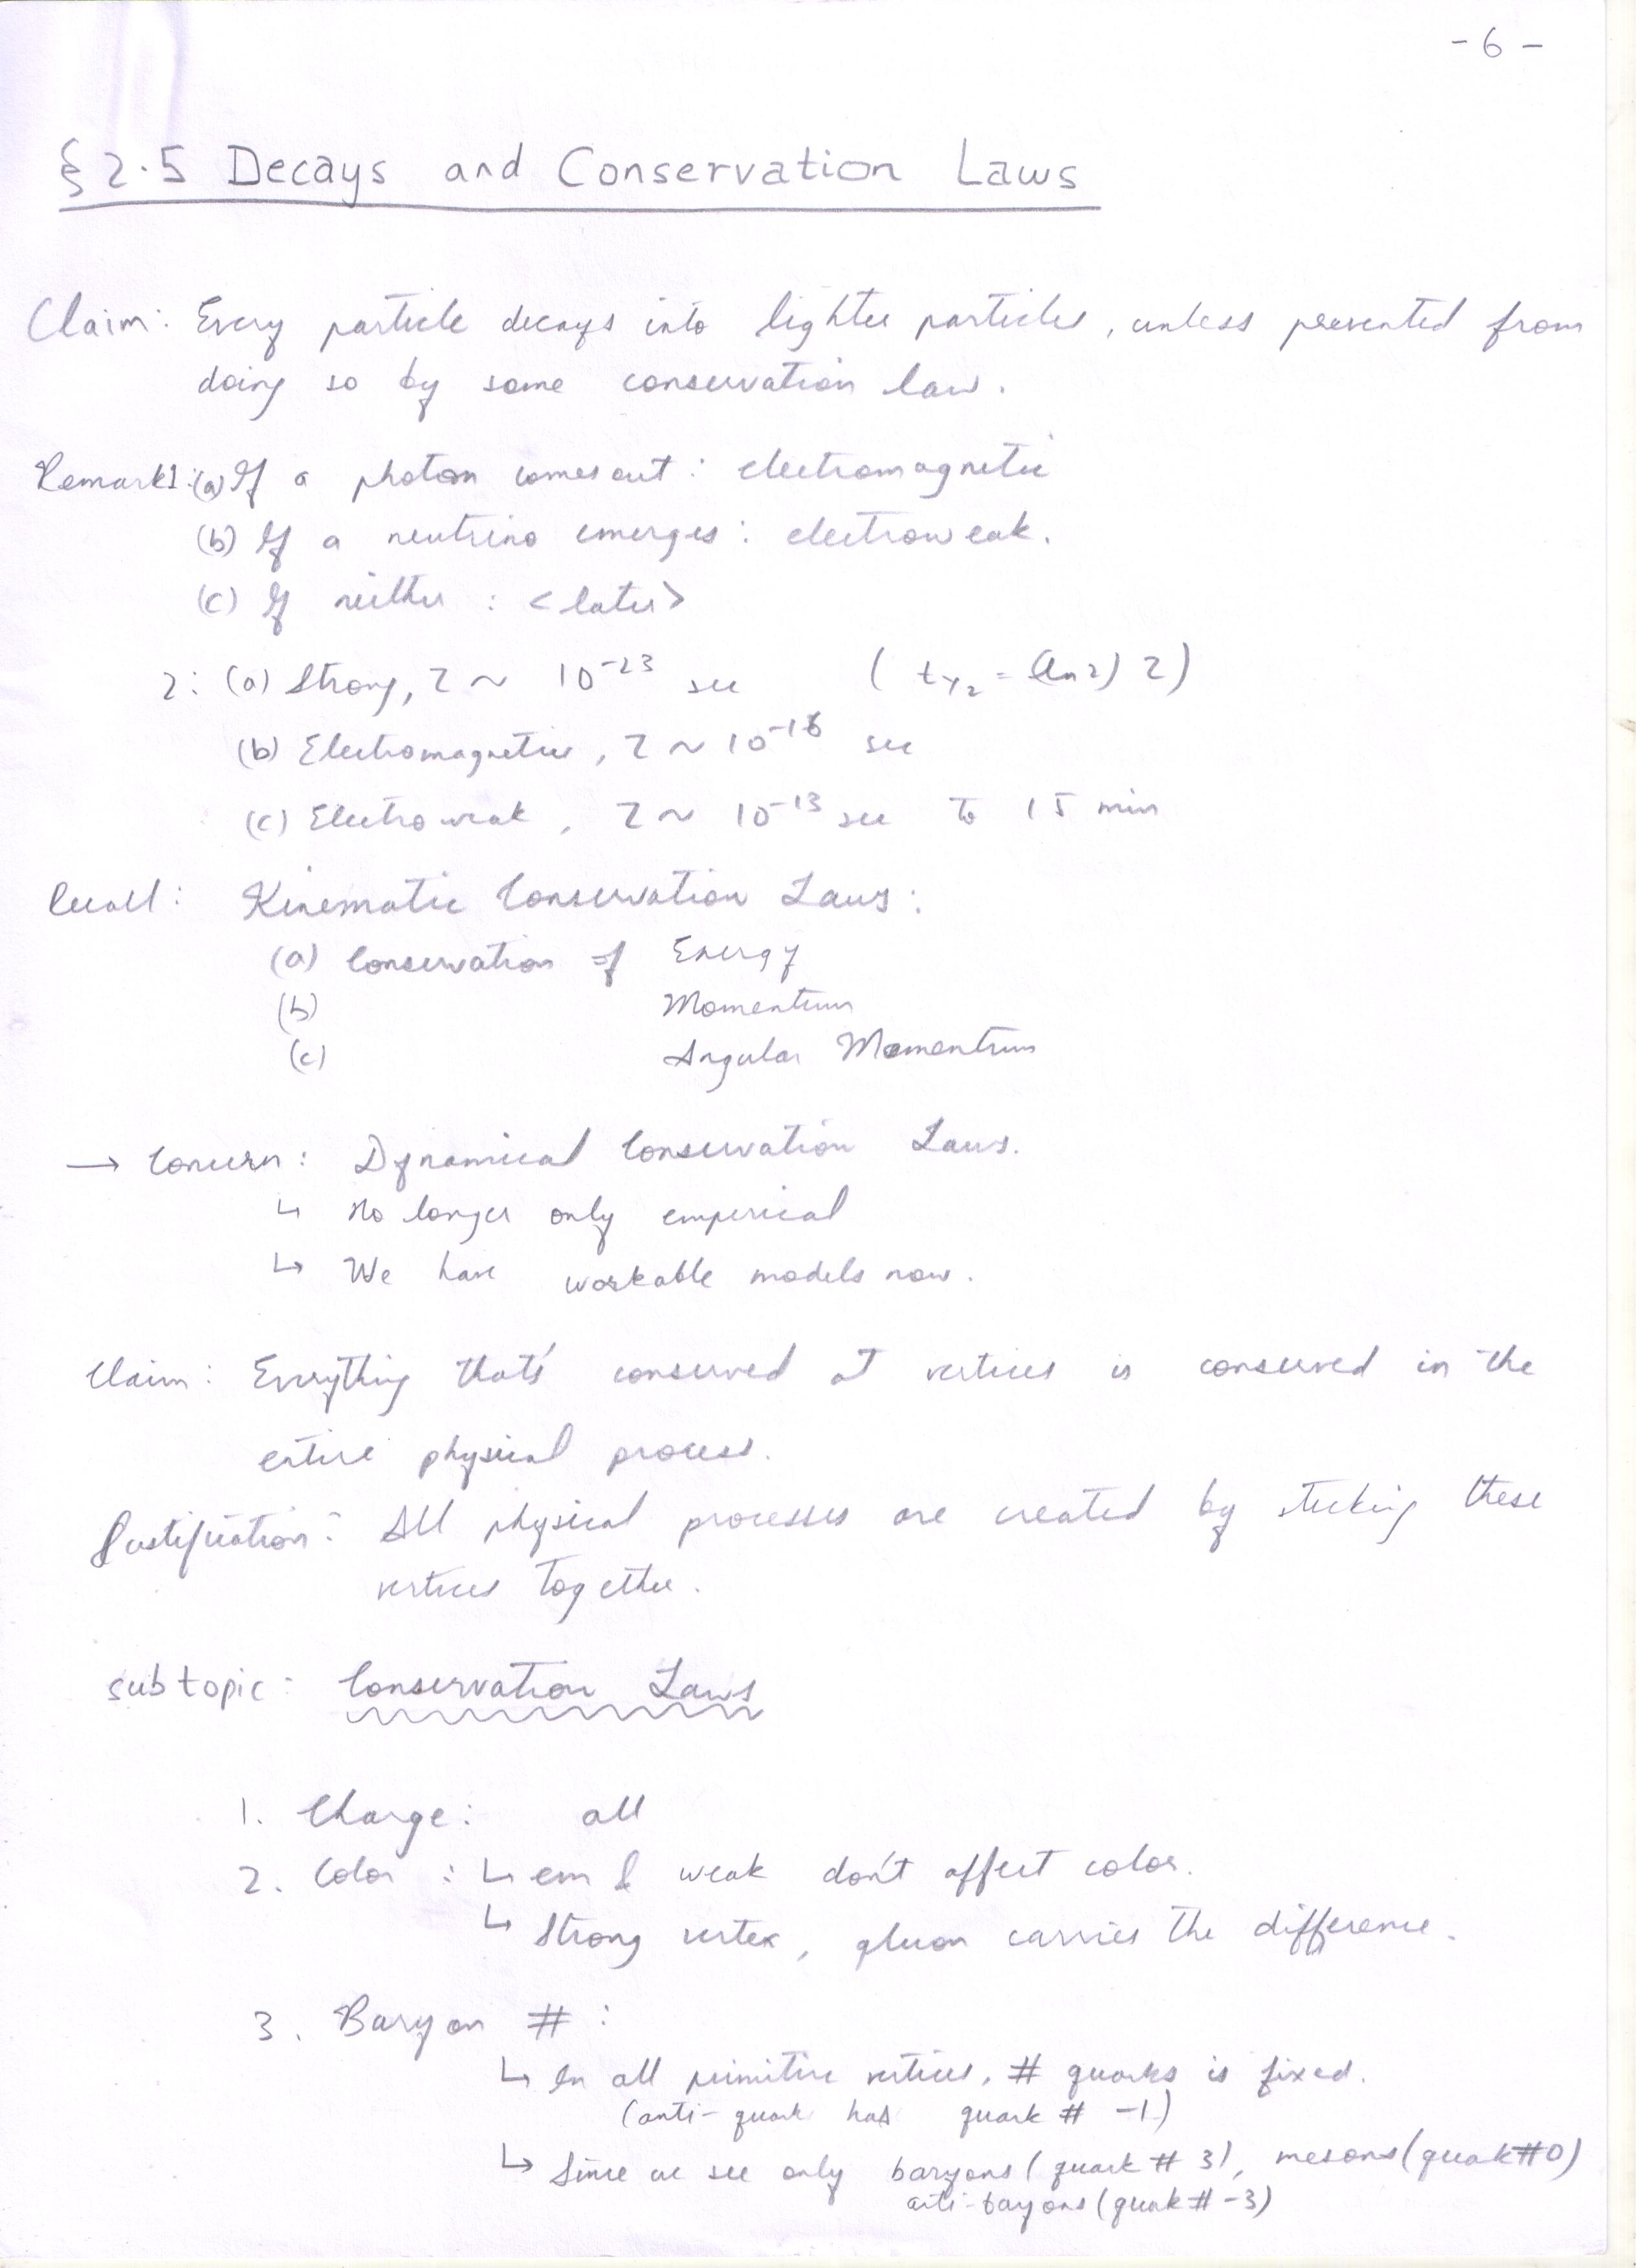 - 6 -
§ 2.5 Decays and Conservation Laws
Claim: Every particle decays into lighter particles, unless prevented from
doing so by some conservation law.
Remark 1: (a) If a photon comes out: electromagnetic
(b) If a neutrino emerges: electroweak.
(c) If neither: <later>
2: (a) Strong, τ ~ 10⁻²³ sec ( t₁/₂ = (ln 2) τ )
(b) Electromagnetic, τ ~ 10⁻¹⁶ sec
(c) Electroweak, τ ~ 10⁻¹³ sec to 15 min
Recall: Kinematic Conservation Laws:
(a) Conservation of Energy
(b) Momentum
(c) Angular Momentum
→ Concern: Dynamical Conservation Laws.
↳ No longer only emperical
↳ We have workable models now.
Claim: Everything that's conserved at vertices is conserved in the
entire physical process.
Justification: All physical processes are created by sticking these
vertices together.
subtopic: Conservation Laws
1. Charge: all
2. Color: ↳ em & weak don't affect color.
↳ Strong vertex, gluon carries the difference.
3. Baryon #:
↳ In all primitive vertices, # quarks is fixed.
(anti-quark has quark # -1)
↳ Since we see only baryons (quark # 3), mesons (quak # 0)
anti-bayons (quak # -3)